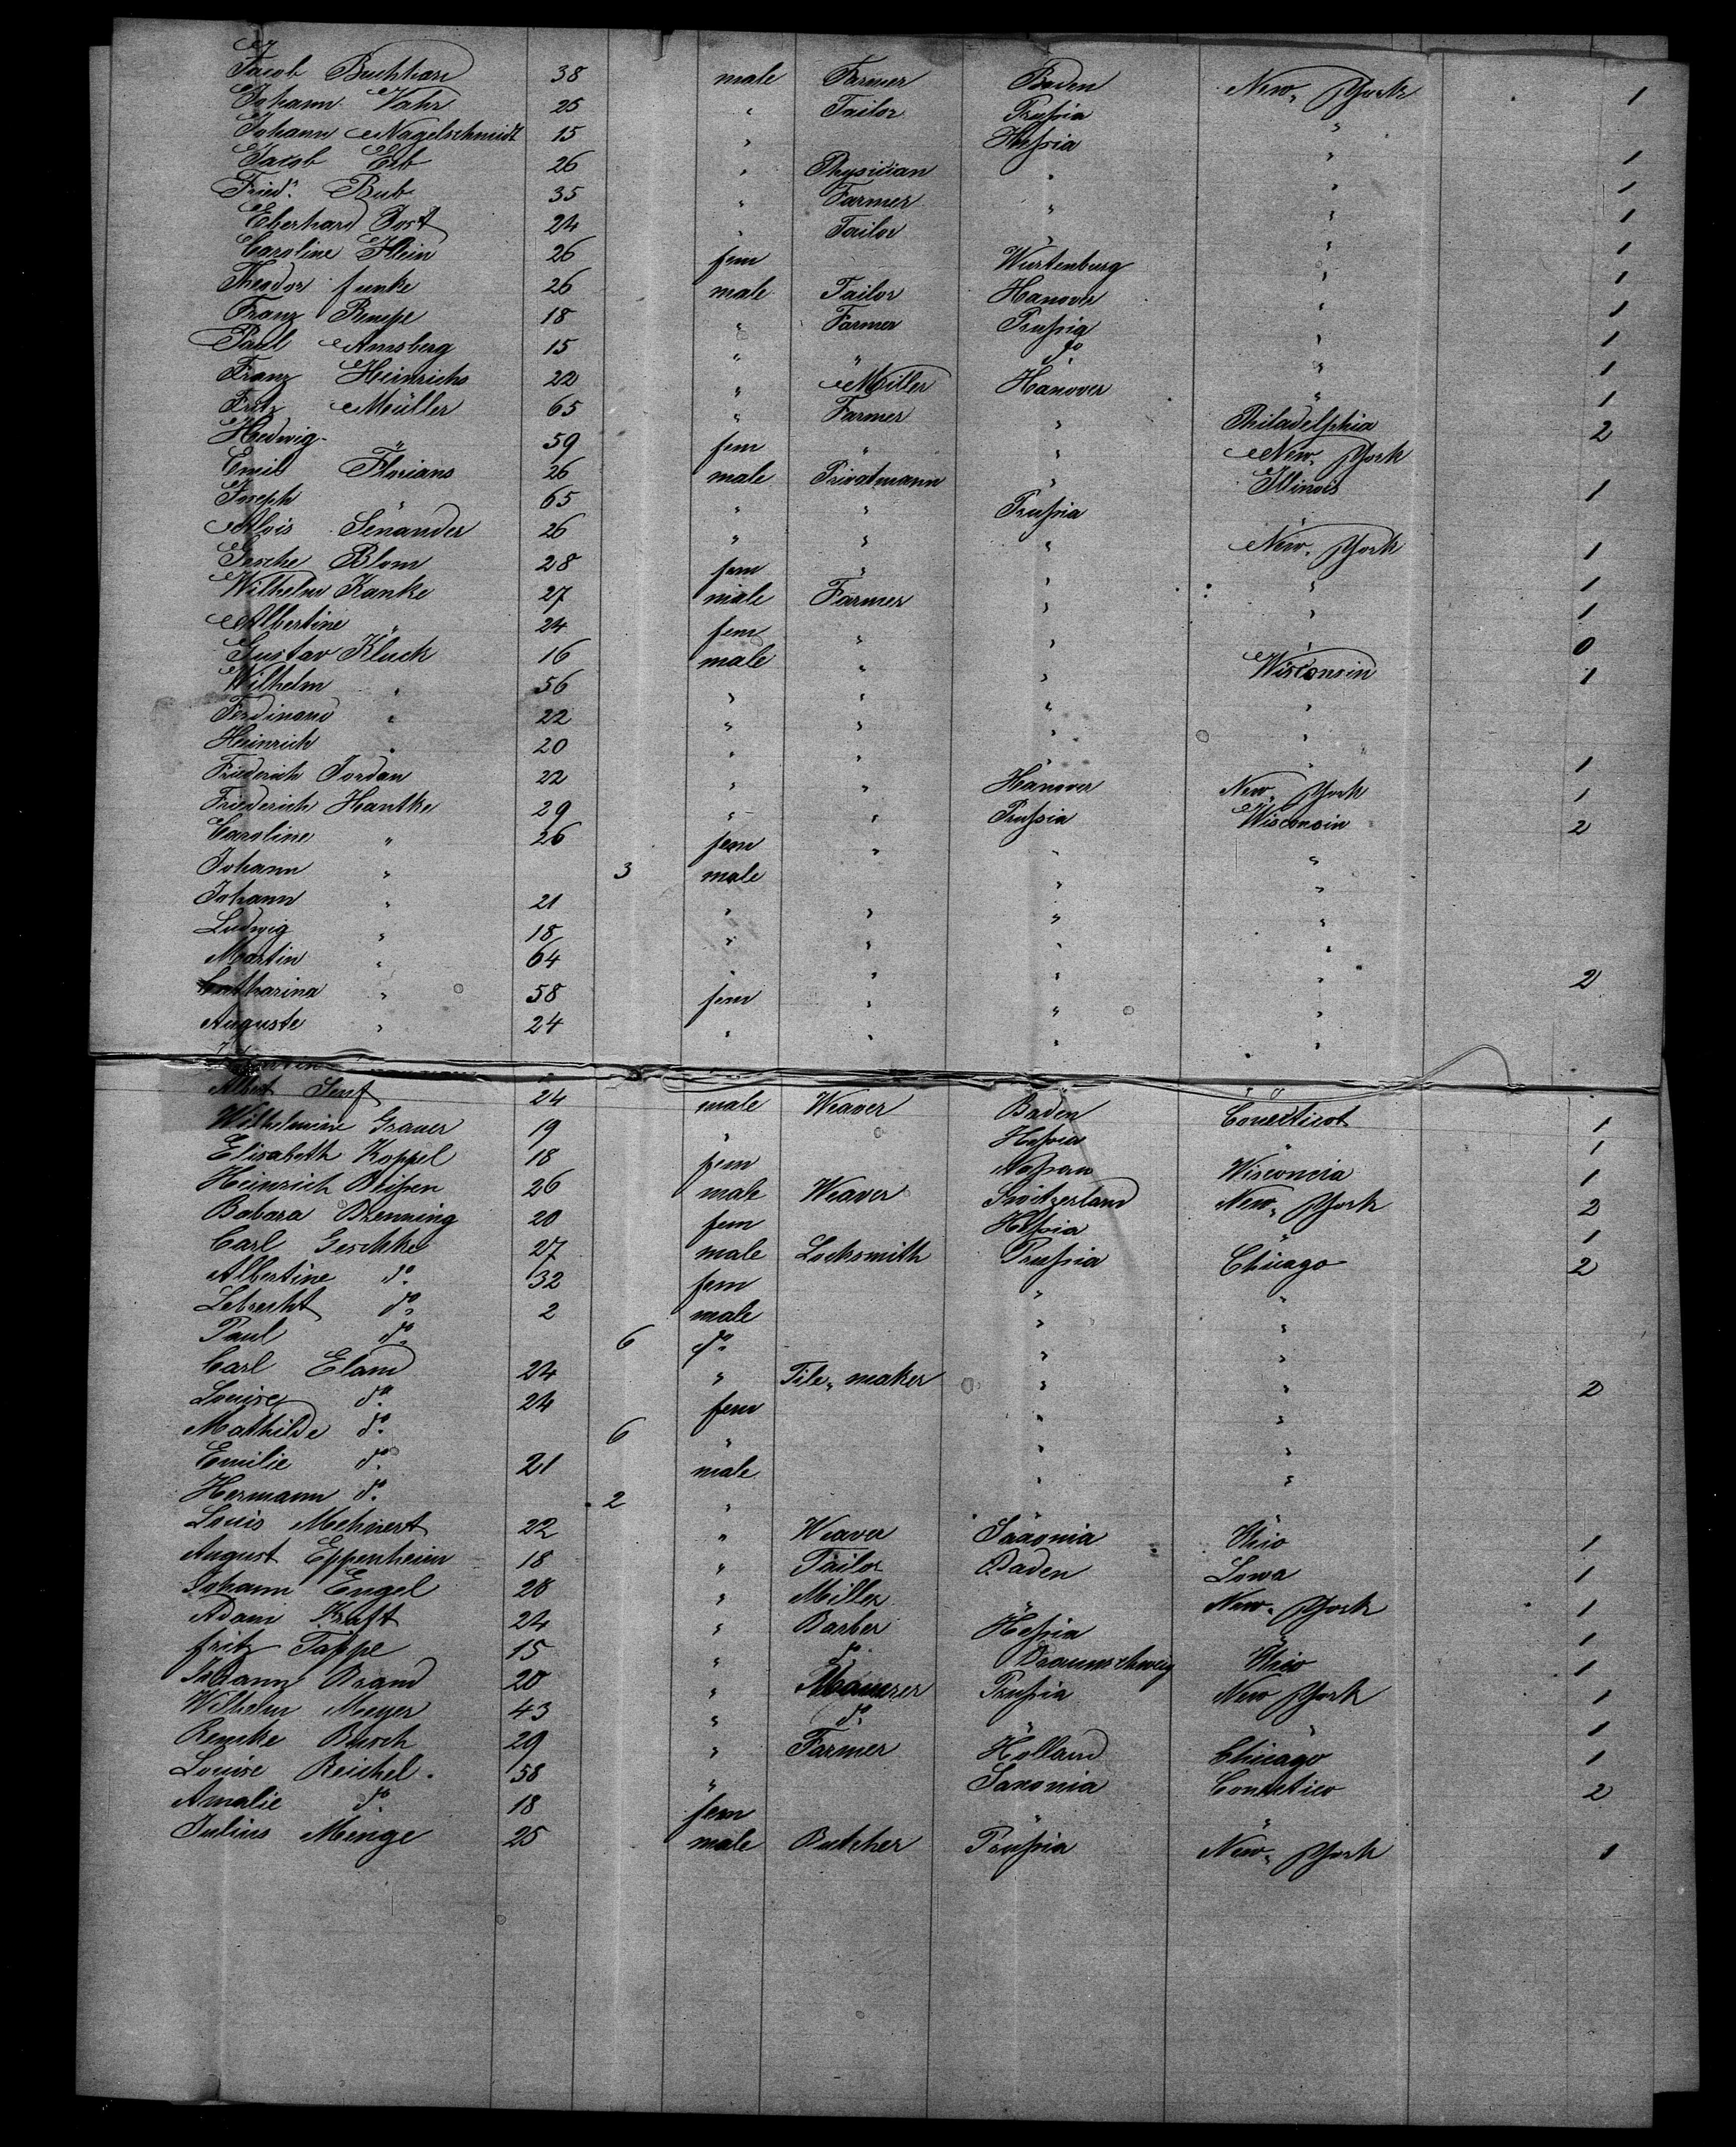 Jacob Buchhari 38 male Farmer Baden New-York 1
Johann Vahr 25 " Tailor Prußia "
Johann Nagelschmidt 15 " Heßia " 1
Jacob Erb 26 " Physician " " 1
Fried. Bub 35 " Farmer " " 1
Eberhard Jost 24 " Tailor " " 1
Caroline Klein 26 fem Wurtenburg " 1
Theodor funke 26 male Tailor Hanover " 1
Franz 18 " Farmer Prußia " 1
Paul Amsberg 15 " " do. " 1
Franz Heinrichs 22 " Miller Hanover " 1
Fritz Müller 65 " Farmer " Philadelphia 2
Hedwig " 59 fem " " New-York
Emil Florians 26 male Privatmann " Illinois 1
Joseph " 65 " " Prußia "
Alois Senander 26 " " " New-York 1
Gesche Blom 28 fem " " " 1
Wilhelm Kanke 27 male Farmer " " 1
Albertine " 24 fem " " " 0
Gustav Kluck 16 male " " Wisconsin 1
Wilhelm " 56 " " " "
Ferdinand " 22 " " " "
Heinrich " 20 " " " " 1
Friederich Jordan 22 " " Hanover New-York 1
Friederich Hantke 29 " " Prußia Wisconsin 2
Caroline " 26 fem " " "
Johann " 3 male " "
Johann " 21 " " " "
Ludwig " 18 " " " "
Martin " 64 " " " " 2
Catharina " 58 fem " " "
Auguste " 24 " " " "
Albert Senf 24 male Weaver Baden Conecticot 1
Wilhelmine Grauer 19 " Heßia " 1
Elisabeth Koppel 18 fem Naßau Wisconcin 1
Heinrich Blißen 26 male Weaver Switzerland New-York 2
Babara Brenning 20 fem Heßia " 1
Carl Geschke 27 male Locksmith Prußia Chicago 2
Albertine do. 32 fem " "
Lebrecht do. 2 male " "
Paul do. 6 do. " "
Carl Eland 24 " Tile-maker " " 2
Louise do. 24 fem " "
Mathilde do. 6 " " "
Emilie do. 21 male " "
Hermann do. 2 "
Louis Mehnert 22 " Weaver Saxonia Ohio 1
August Eppenheim 18 " Tailor Baden Iowa 1
Johann Engel 28 " Miller " New-York 1
Adam Kraft 24 " Barber Heßia " 1
fritz Tappe 15 " do. Braunschweig Ohio 1
Johann Brand 20 " Maurer Prußia New York 1
Wilhelm Meyer 43 " do. " " 1
Remke Busch 29 " Farmer Holland Chicago 1
Louise Reichel 58 " Saxonia Connetico 2
Amalie do. 18 fem " "
Julius Menge 25 male Butcher Prußia New-York 1